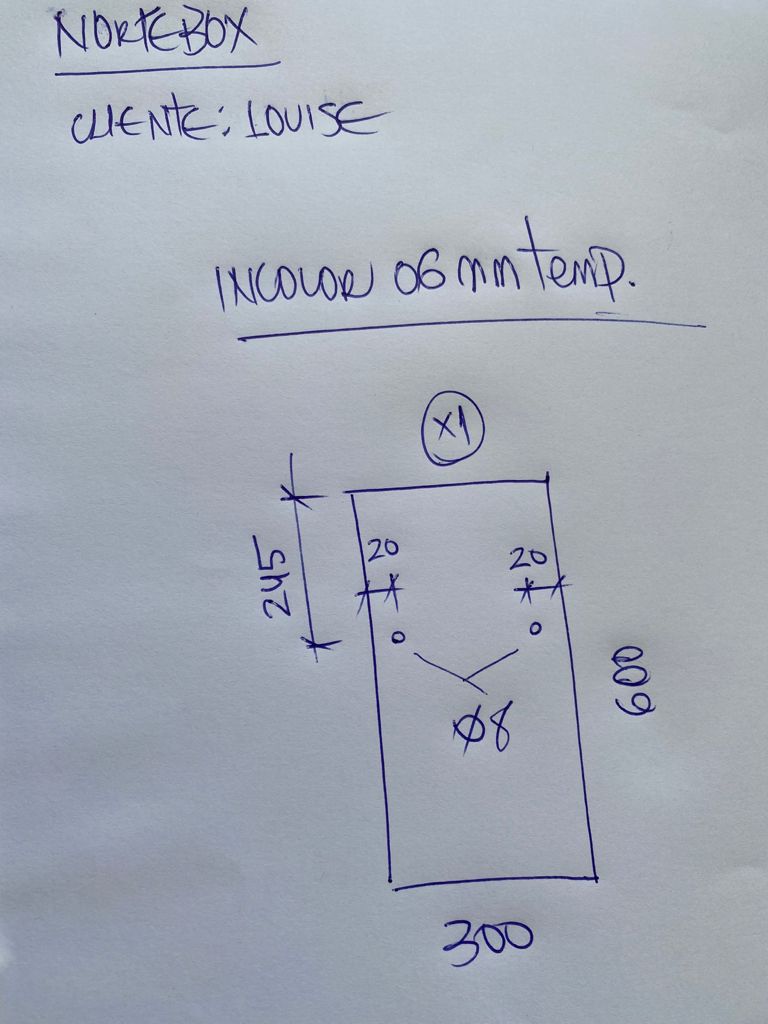 NORTEBOX
CLIENTE: LOUISE
INCOLOR 06 mm temp.
X1
20 20
245
600
Ø8
300